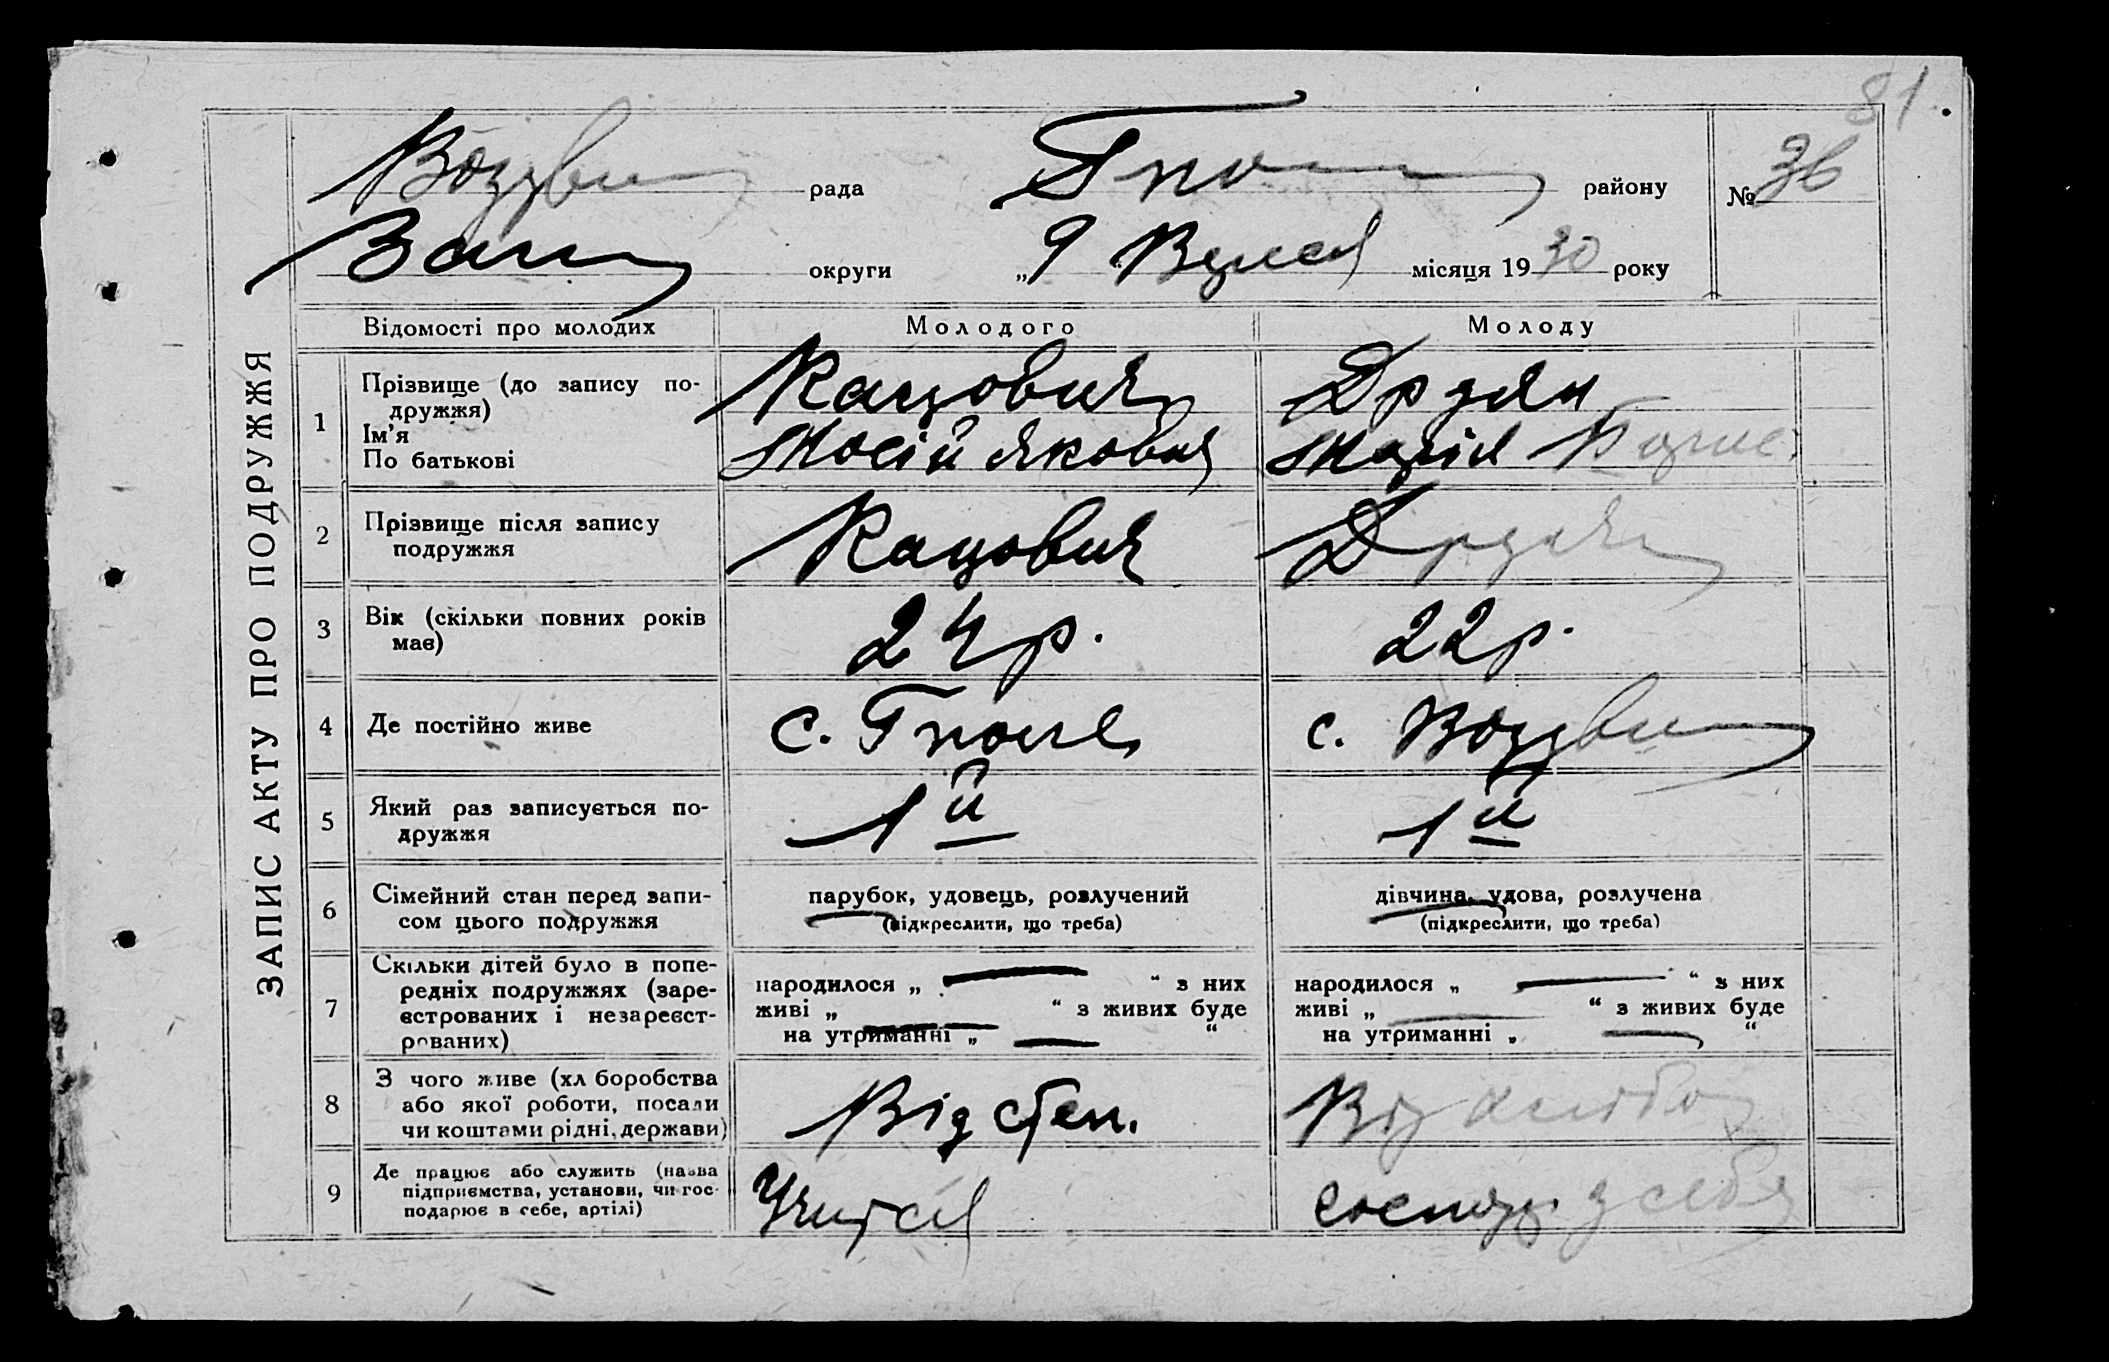 81.
Воздви рада Гпол району № 36
Зап округи „9“ Вереся місяця 1930 року
ЗАПИС АКТУ ПРО ПОДРУЖЖЯ
Відомості про молодих Молодого Молоду
1 Прізвище (до запису по-
дружжя)
Ім'я
По батькові
Кацович
Мосій Якович
Дрдян
Марія
2 Прізвище після запису
подружжя
Кацович
3 Вік (скільки повних років
має)
24 р.
22 р.
4 Де постійно живе
с. Гполе
с. Воздви
5 Який раз записується по-
дружжя
1й
1й
6 Сімейний стан перед запи-
сом цього подружжя
парубок, удовець, розлучений
(підкреслити, що треба)
дівчина, удова, розлучена
(підкреслити, що треба)
7 Скільки дітей було в попе-
редніх подружжях (заре-
єстрованих і незареєст-
рованих)
народилося „ — “ з них
живі „ — “ з живих буде
на утриманні „ — “
народилося „ — “ з них
живі „ — “ з живих буде
на утриманні „ — “
8 З чого живе (хл боробства
або якої роботи, посади
чи коштами рідні, держави)
Від степ.
Від хлібо
9 Де працює або служить (назва
підприємства, установи, чи гос-
подарює в себе, артілі)
Учится
господ. у себя